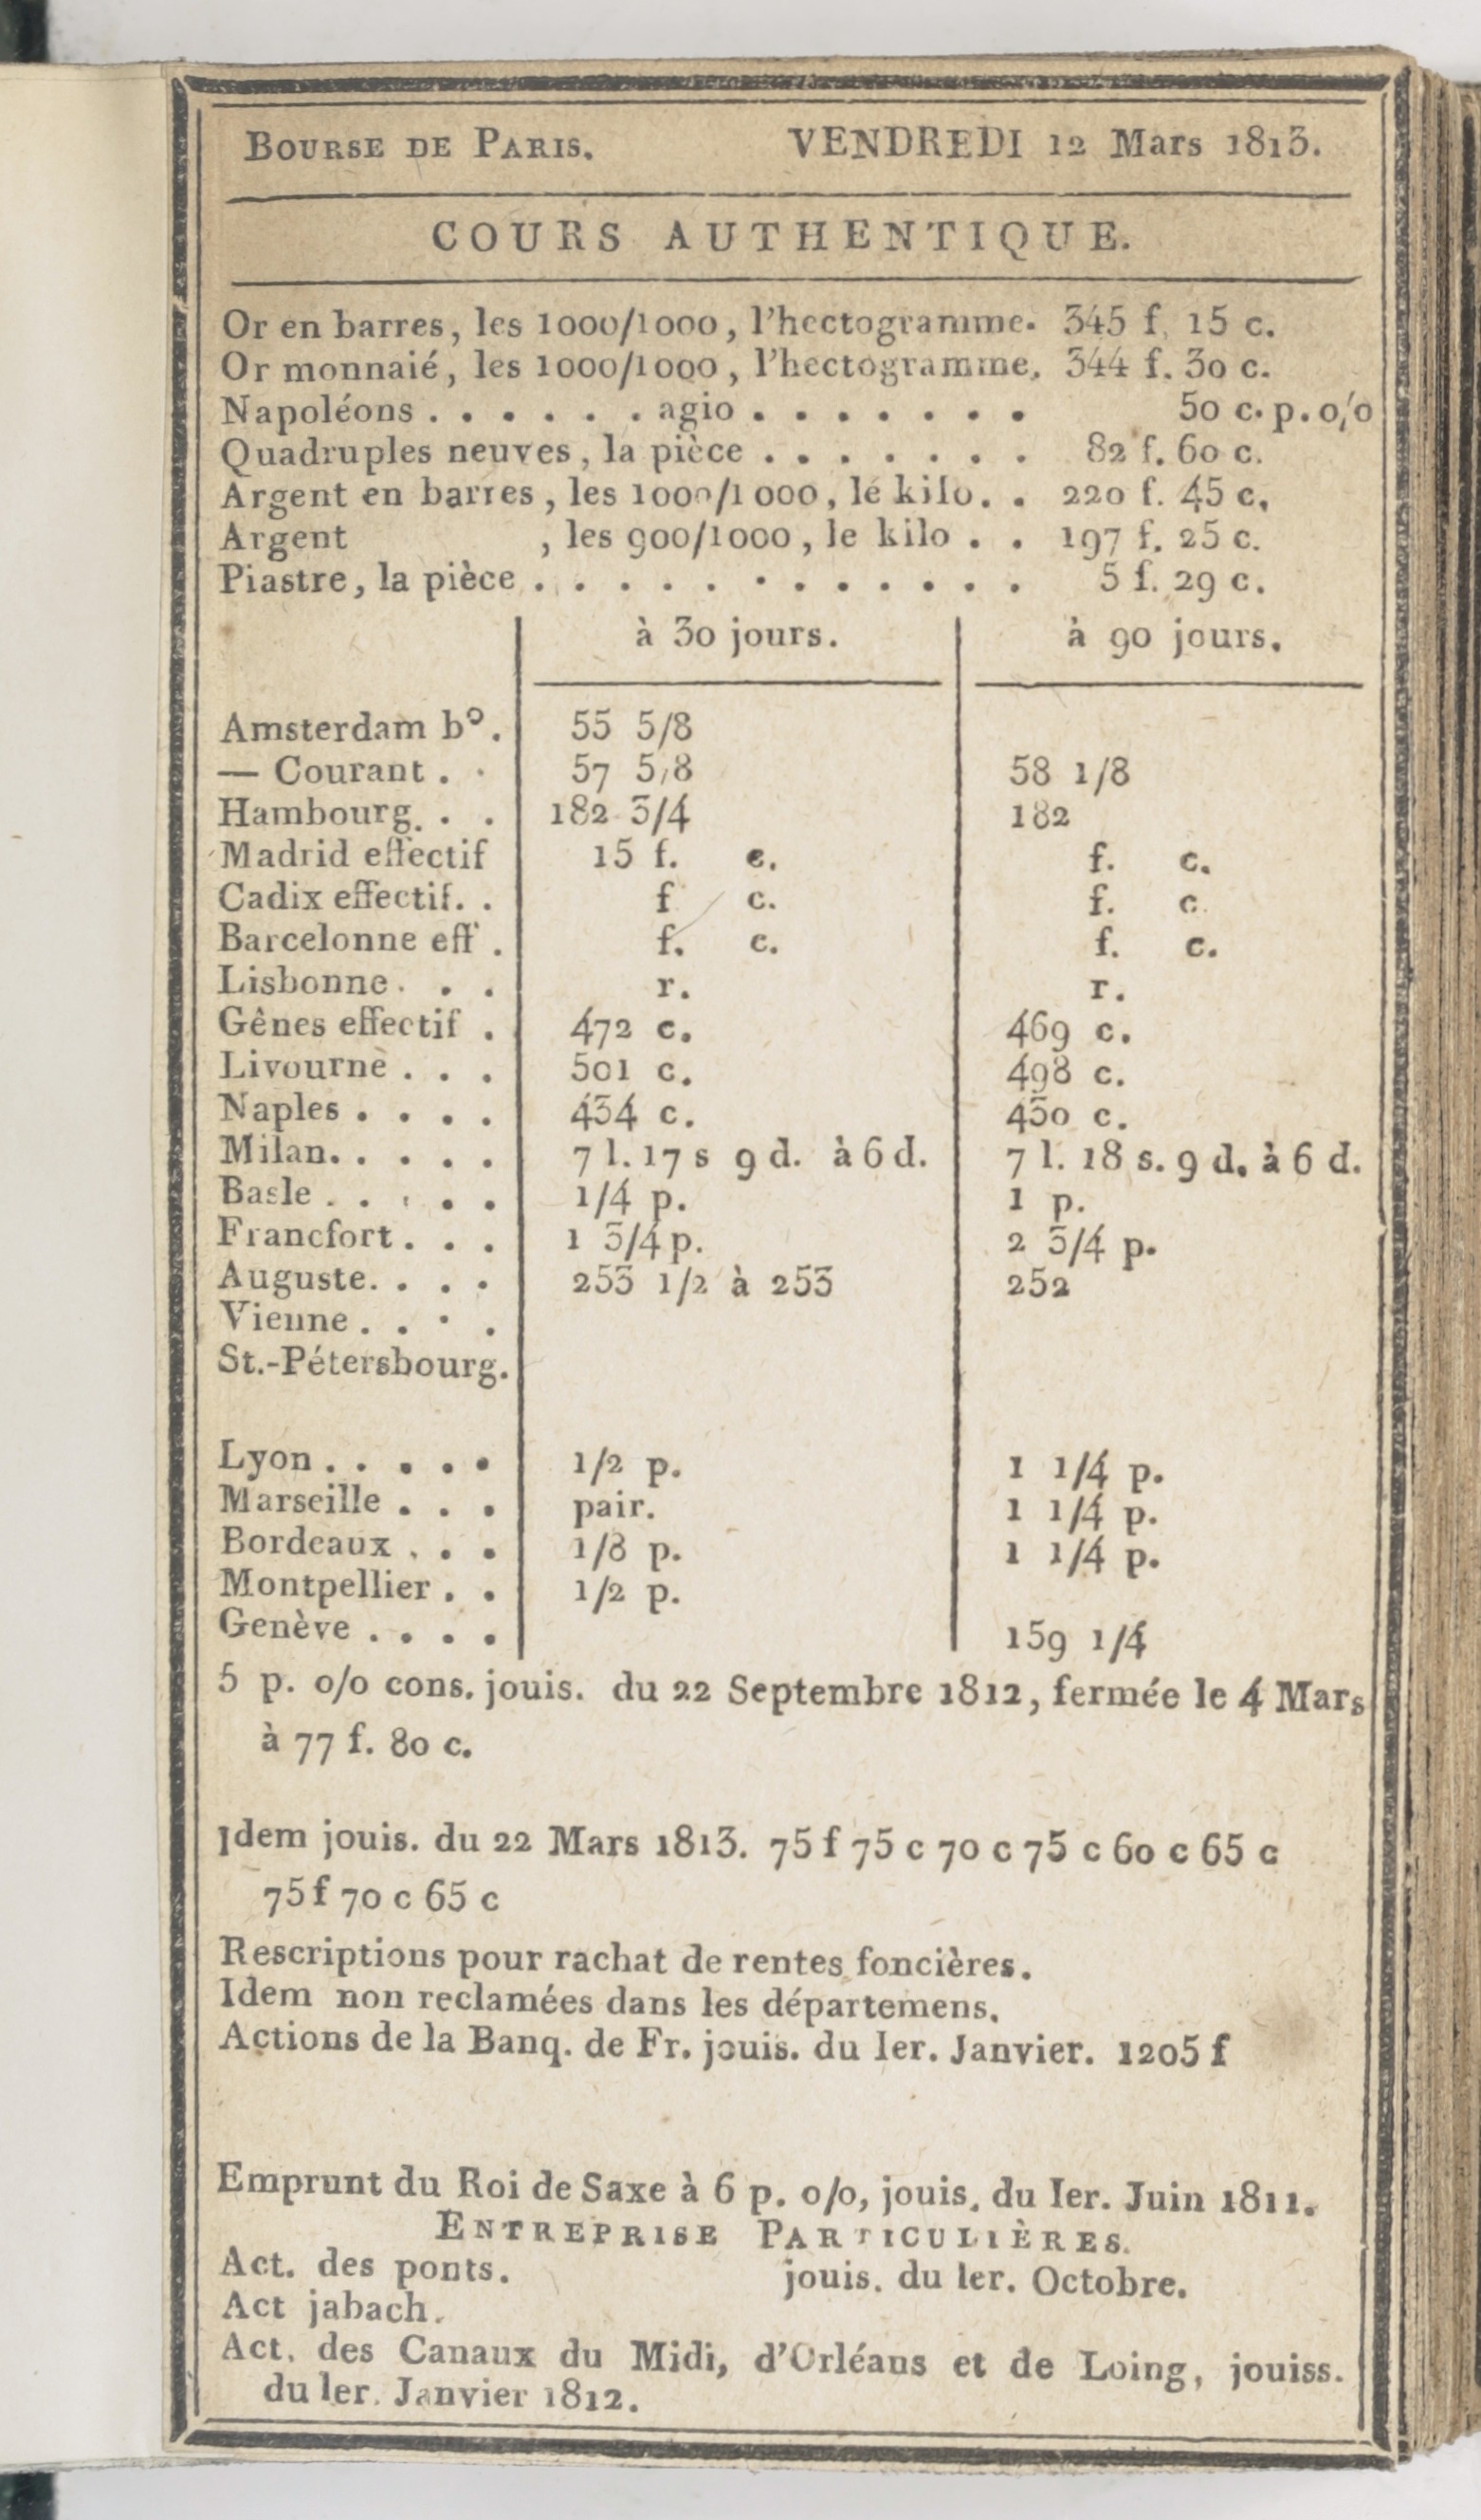 BOURSE DE PARIS. VENDREDI 12 Mars 1813.
COURS AUTHENTIQUE.
Or en barres, les 1000/1000, l'hectogramme. 345 f. 15 c.
Or monnaié, les 1000/1000, l'hectogramme, 344 f. 30 c.
Napoléons . . . . . . agio . . . . . . . 50 c. p. 0/0
Quadruples neuves, la pièce . . . . . . . 82 f. 60 c.
Argent en barres, les 1000/1000, le kilo. . 220 f. 45 c.
Argent , les 900/1000, le kilo . . 197 f. 25 c.
Piastre, la pièce . . . . . . . . . . . . . 5 f. 29 c.
à 30 jours. à 90 jours.
Amsterdam b°. 55 5/8
— Courant . . 57 5/8 58 1/8
Hambourg. . . 182 3/4 182
Madrid effectif 15 f. c. f. c.
Cadix effectif. . f c. f. c.
Barcelonne eff . f. c. f. c.
Lisbonne. . . r. r.
Gênes effectif . 472 c. 469 c.
Livourne . . . 501 c. 498 c.
Naples . . . . 434 c. 430 c.
Milan. . . . . 7 l. 17 s 9 d. à 6 d. 7 l. 18 s. 9 d. à 6 d.
Basle . . . . . 1/4 p. 1 p.
Francfort . . . 1 3/4 p. 2 3/4 p.
Auguste. . . . 253 1/2 à 253 252
Vienne . . . .
St.-Pétersbourg.
Lyon . . . . . 1/2 p. 1 1/4 p.
Marseille . . . pair. 1 1/4 p.
Bordeaux . . . 1/8 p. 1 1/4 p.
Montpellier . . 1/2 p.
Genève . . . . 159 1/4
5 p. 0/0 cons. jouis. du 22 Septembre 1812, fermée le 4 Mars
à 77 f. 80 c.
Idem jouis. du 22 Mars 1813. 75 f 75 c 70 c 75 c 60 c 65 c
75 f 70 c 65 c
Rescriptions pour rachat de rentes foncières.
Idem non reclamées dans les départemens.
Actions de la Banq. de Fr. jouis. du Ier. Janvier. 1205 f
Emprunt du Roi de Saxe à 6 p. 0/0, jouis. du Ier. Juin 1811.
ENTREPRISE PARTICULIÈRES.
Act. des ponts. jouis. du Ier. Octobre.
Act jabach.
Act. des Canaux du Midi, d'Orléans et de Loing, jouiss.
du Ier. Janvier 1812.